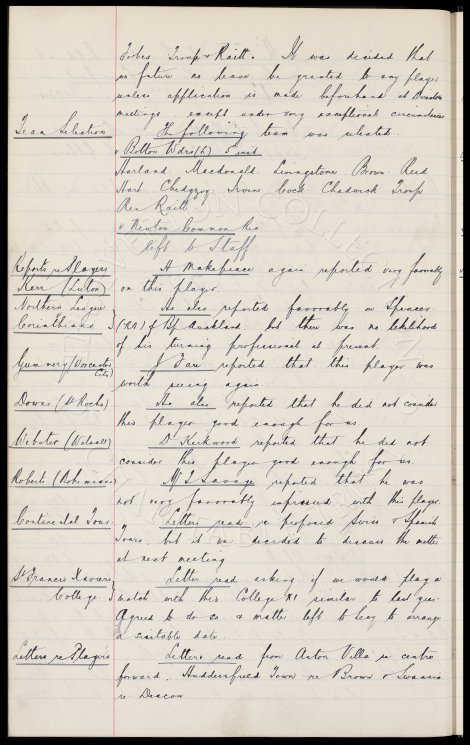 Forbes Troup & Raitt. It was decided that
in future no leave be granted to any player
unless application is made beforehand at Directors
meetings except under very exceptional circumstances
Team Selection
The following team was selected.
v Bolton Wdrs (h) Semi
Hartland. Macdonald. Livingstone. Brown. Reid
Hart. Chedgzoy. Irvine. Cock. Chadwick. Troup
Res Raitt
v Newton Common Res
left to Staff.
Reports re Players
Kerr (Luton)
H Makepeace again reported very favorably
on this player.
Northern League
Corinthians
He also reported favorably on Spencer.
(RA) of Bp Auckland, but there was no likelihood
of his turning professional at present.
Gummery (Worcester City)
J Farr reported that this player was
worth seeing again.
Downs (St Rochs)
He also reported that he did not consider
this player good enough for us
Webster (Walsall)
D Kirkwood reported that he did not
consider this player good enough for us.
Roberts (Bohemians)
M T Savage reported that he was
not very favorably impressed with this player.
Continental Tour
Letters read re proposed Swiss & Spanish
Tours, but it was decided to discuss the matter
at next meeting.
St Francis Xaviers
College
Letter read asking if we would play a
match with this College XI similar to last year.
Agreed to do so & matter left to Secy to arrange
a suitable date.
Letters re Players
Letters read from Aston Villa re centre
forward. Huddersfield Town re Brown & Swansea
re Deacon